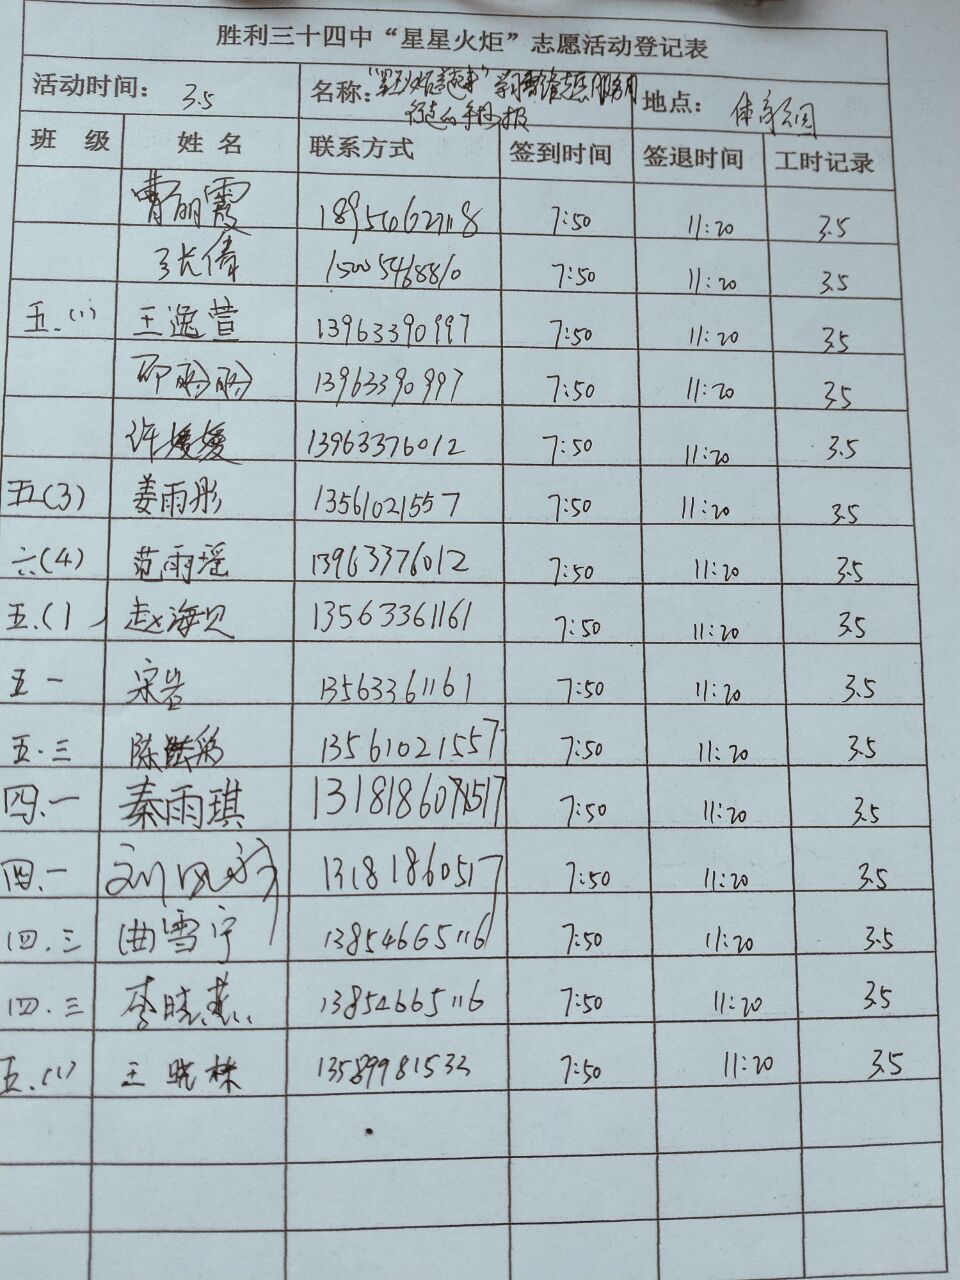 胜利三十四中“星星火炬”志愿活动登记表
活动时间： 3.5 名称： 地点： 体育公园
手抄报
班 级 姓 名 联系方式 签到时间 签退时间 工时记录
曹丽霞 7:50 11:20 3.5
张倩 15005468810 7:50 11:20 3.5
五.(1) 王逸萱 13963390997 7:50 11:20 3.5
邵丽丽 13963390997 7:50 11:20 3.5
许媛媛 13963376012 7:50 11:20 3.5
五(3) 姜雨彤 13561021557 7:50 11:20 3.5
六(4) 范雨瑶 13963376012 7:50 11:20 3.5
五.(1) 赵海贝 13563361161 7:50 11:20 3.5
五一 宋岩 13563361161 7:50 11:20 3.5
五.三 陈 13561021557 7:50 11:20 3.5
四.一 秦雨琪 7:50 11:20 3.5
四.一 刘 13181860517 7:50 11:20 3.5
四.三 曲雪宁 13854665116 7:50 11:20 3.5
四.三 李晓燕 13854665116 7:50 11:20 3.5
五.(1) 王晓林 13589981533 7:50 11:20 3.5